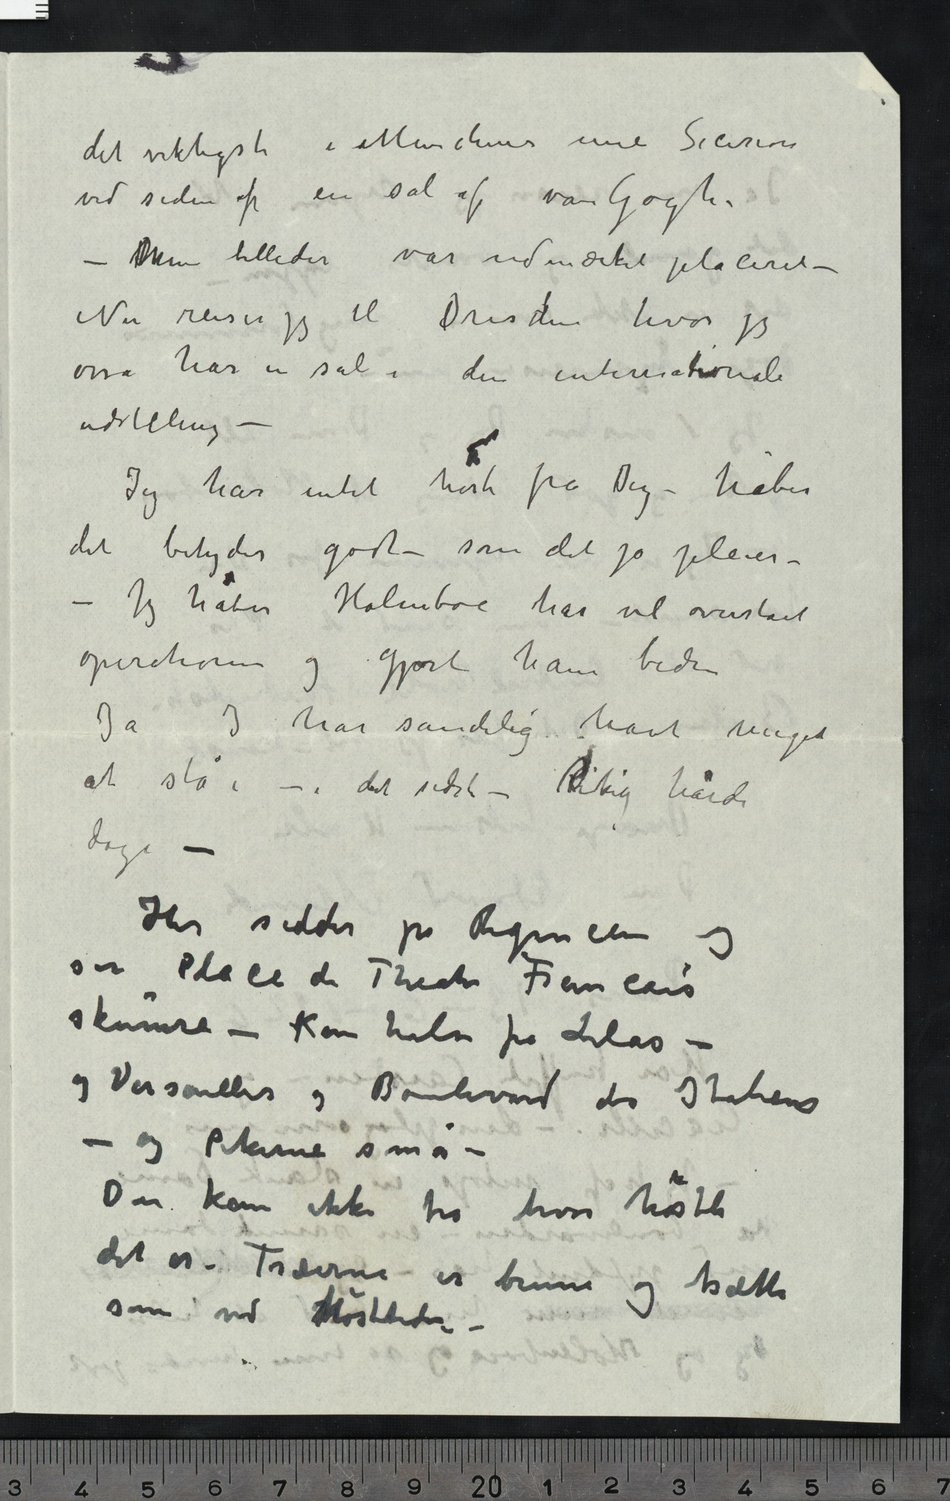 det viktigste i Münchener nue Secesion
ved siden af en sal af van Gogh.
— Mine billeder var udmærket placeret —
Nu reiser jeg til Dresden hvor jeg
osså har en sal i den internationale
udstilling —
Jeg har intet hørt fra Dig — håber
det betyder godt — som det jo pleier —
— Jeg håber Holmboe har vel overstået
operationen og gjort ham bedre
Ja I har sandelig havt meget
at stå i — i det sidste — Riktig hårde
dage —
Her sidder jeg på Regencen og
ser Place de Theatre Francais
skumre — Kom hilsn fra Lilas —
og Versailles og Boulevard des Italiens
— og Pikerne små —
Du kan ikke tro hvor høstli
det er — Træerne er brune og trætte
som ved Høsttider —